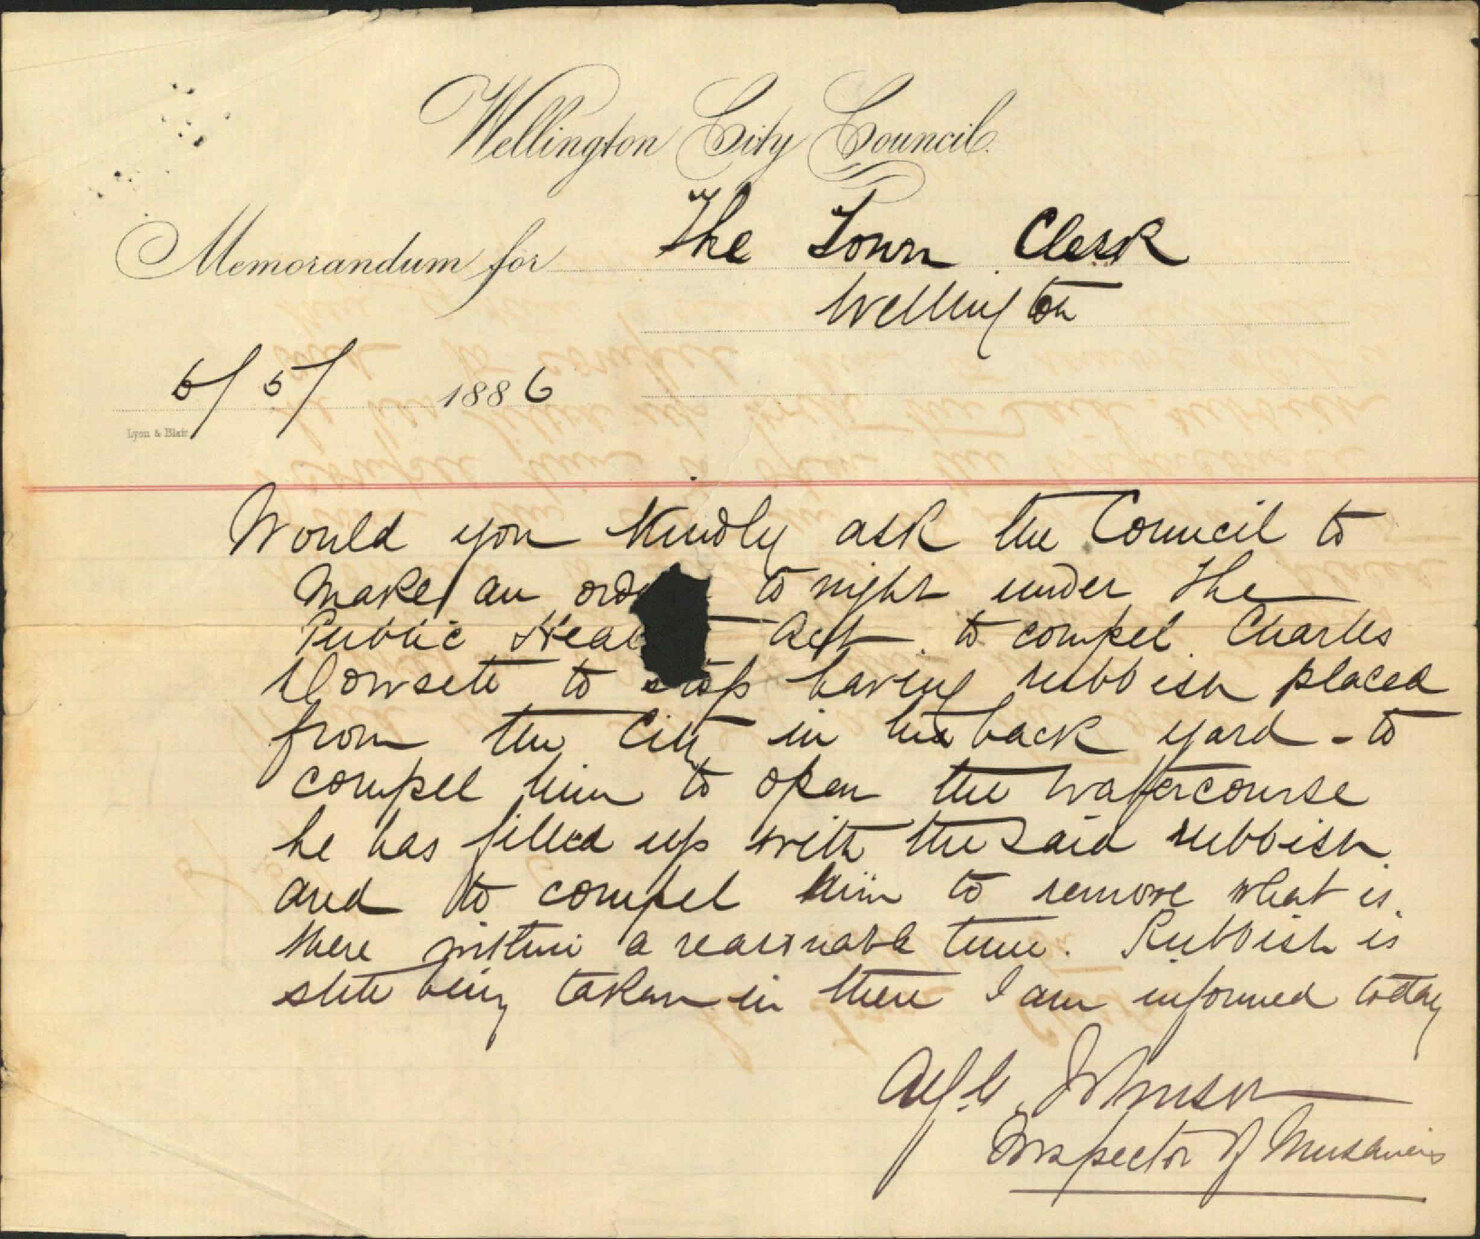 Wellington City Council.
Memorandum for The Town Clerk
Wellington
5/5/ 1886
Lyon & Blair
Would you kindly ask the Council to
make an orde to night under the
Public Heal Act to compel Charles
Dowsett to stop having rubbish placed
from the City in his back yard - to
compel him to open the watercourse
he has filled up with the said rubbish
and to compel him to remove what is
there within a reasonable time. Rubbish is
still being taken in there I am informed today
Johnson
Inspector of Nuisances